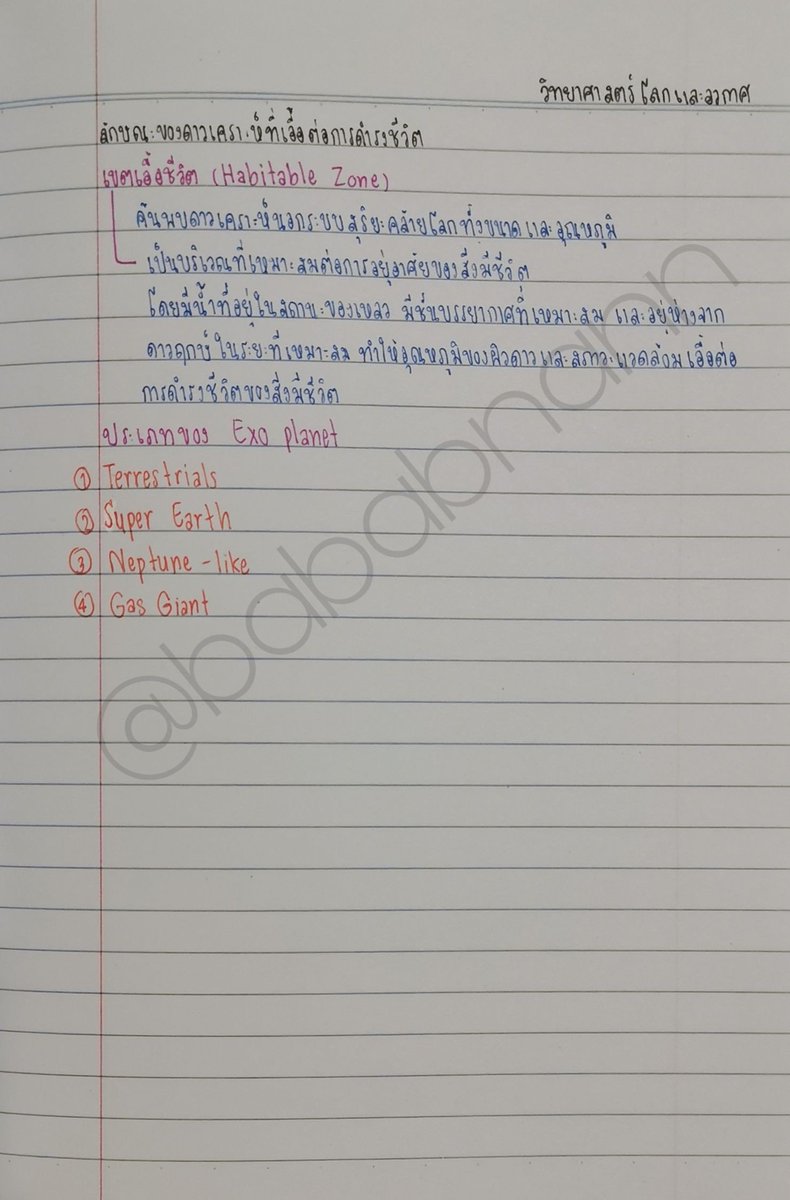 วิทยาศาสตร์ โลก และอวกาศ
ลักษณะของดาวเคราะห์ที่เอื้อต่อการดำรงชีวิต
เขตเอื้อชีวิต (Habitable Zone)
ค้นพบดาวเคราะห์นอกระบบสุริยะคล้ายโลกทั้งขนาดและอุณหภูมิ
เป็นบริเวณที่เหมาะสมต่อการอยู่อาศัยของสิ่งมีชีวิต
โดยมีน้ำที่อยู่ในสถานะของเหลว มีชั้นบรรยากาศที่เหมาะสม และอยู่ห่างจาก
ดาวฤกษ์ ในระยะที่เหมาะสม ทำให้อุณหภูมิของผิวดาวและสภาวะแวดล้อม เอื้อต่อ
การดำรงชีวิตของสิ่งมีชีวิต
ประเภทของ Exo planet
① Terrestrials
② Super Earth
③ Neptune-like
④ Gas Giant
@babababnann